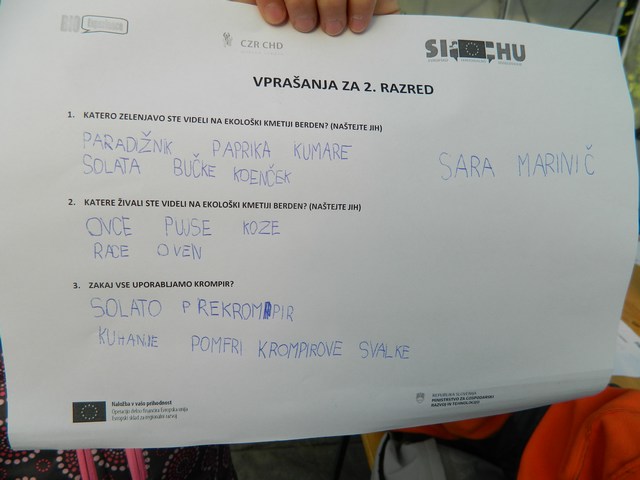 CZR CHD
SI HU
VPRAŠANJA ZA 2. RAZRED
1. KATERO ZELENJAVO STE VIDELI NA EKOLOŠKI KMETIJI BERDEN? (NAŠTEJTE JIH)
PARADIŽNIK PAPRIKA KUMARE
SOLATA BUČKE KOENČEK
SARA MARINIČ
2. KATERE ŽIVALI STE VIDELI NA EKOLOŠKI KMETIJI BERDEN? (NAŠTEJTE JIH)
OVCE PUJSE KOZE
RACE OVEN
3. ZAKAJ VSE UPORABLJAMO KROMPIR?
SOLATO PREKROMPIR
KUHANJE POMFRI KROMPIROVE SVALKE
Naložba v vašo prihodnost
Operacijo delno financira Evropska unija
Evropski sklad za regionalni razvoj
REPUBLIKA SLOVENIJA
MINISTRSTVO ZA GOSPODARSKI
RAZVOJ IN TEHNOLOGIJO